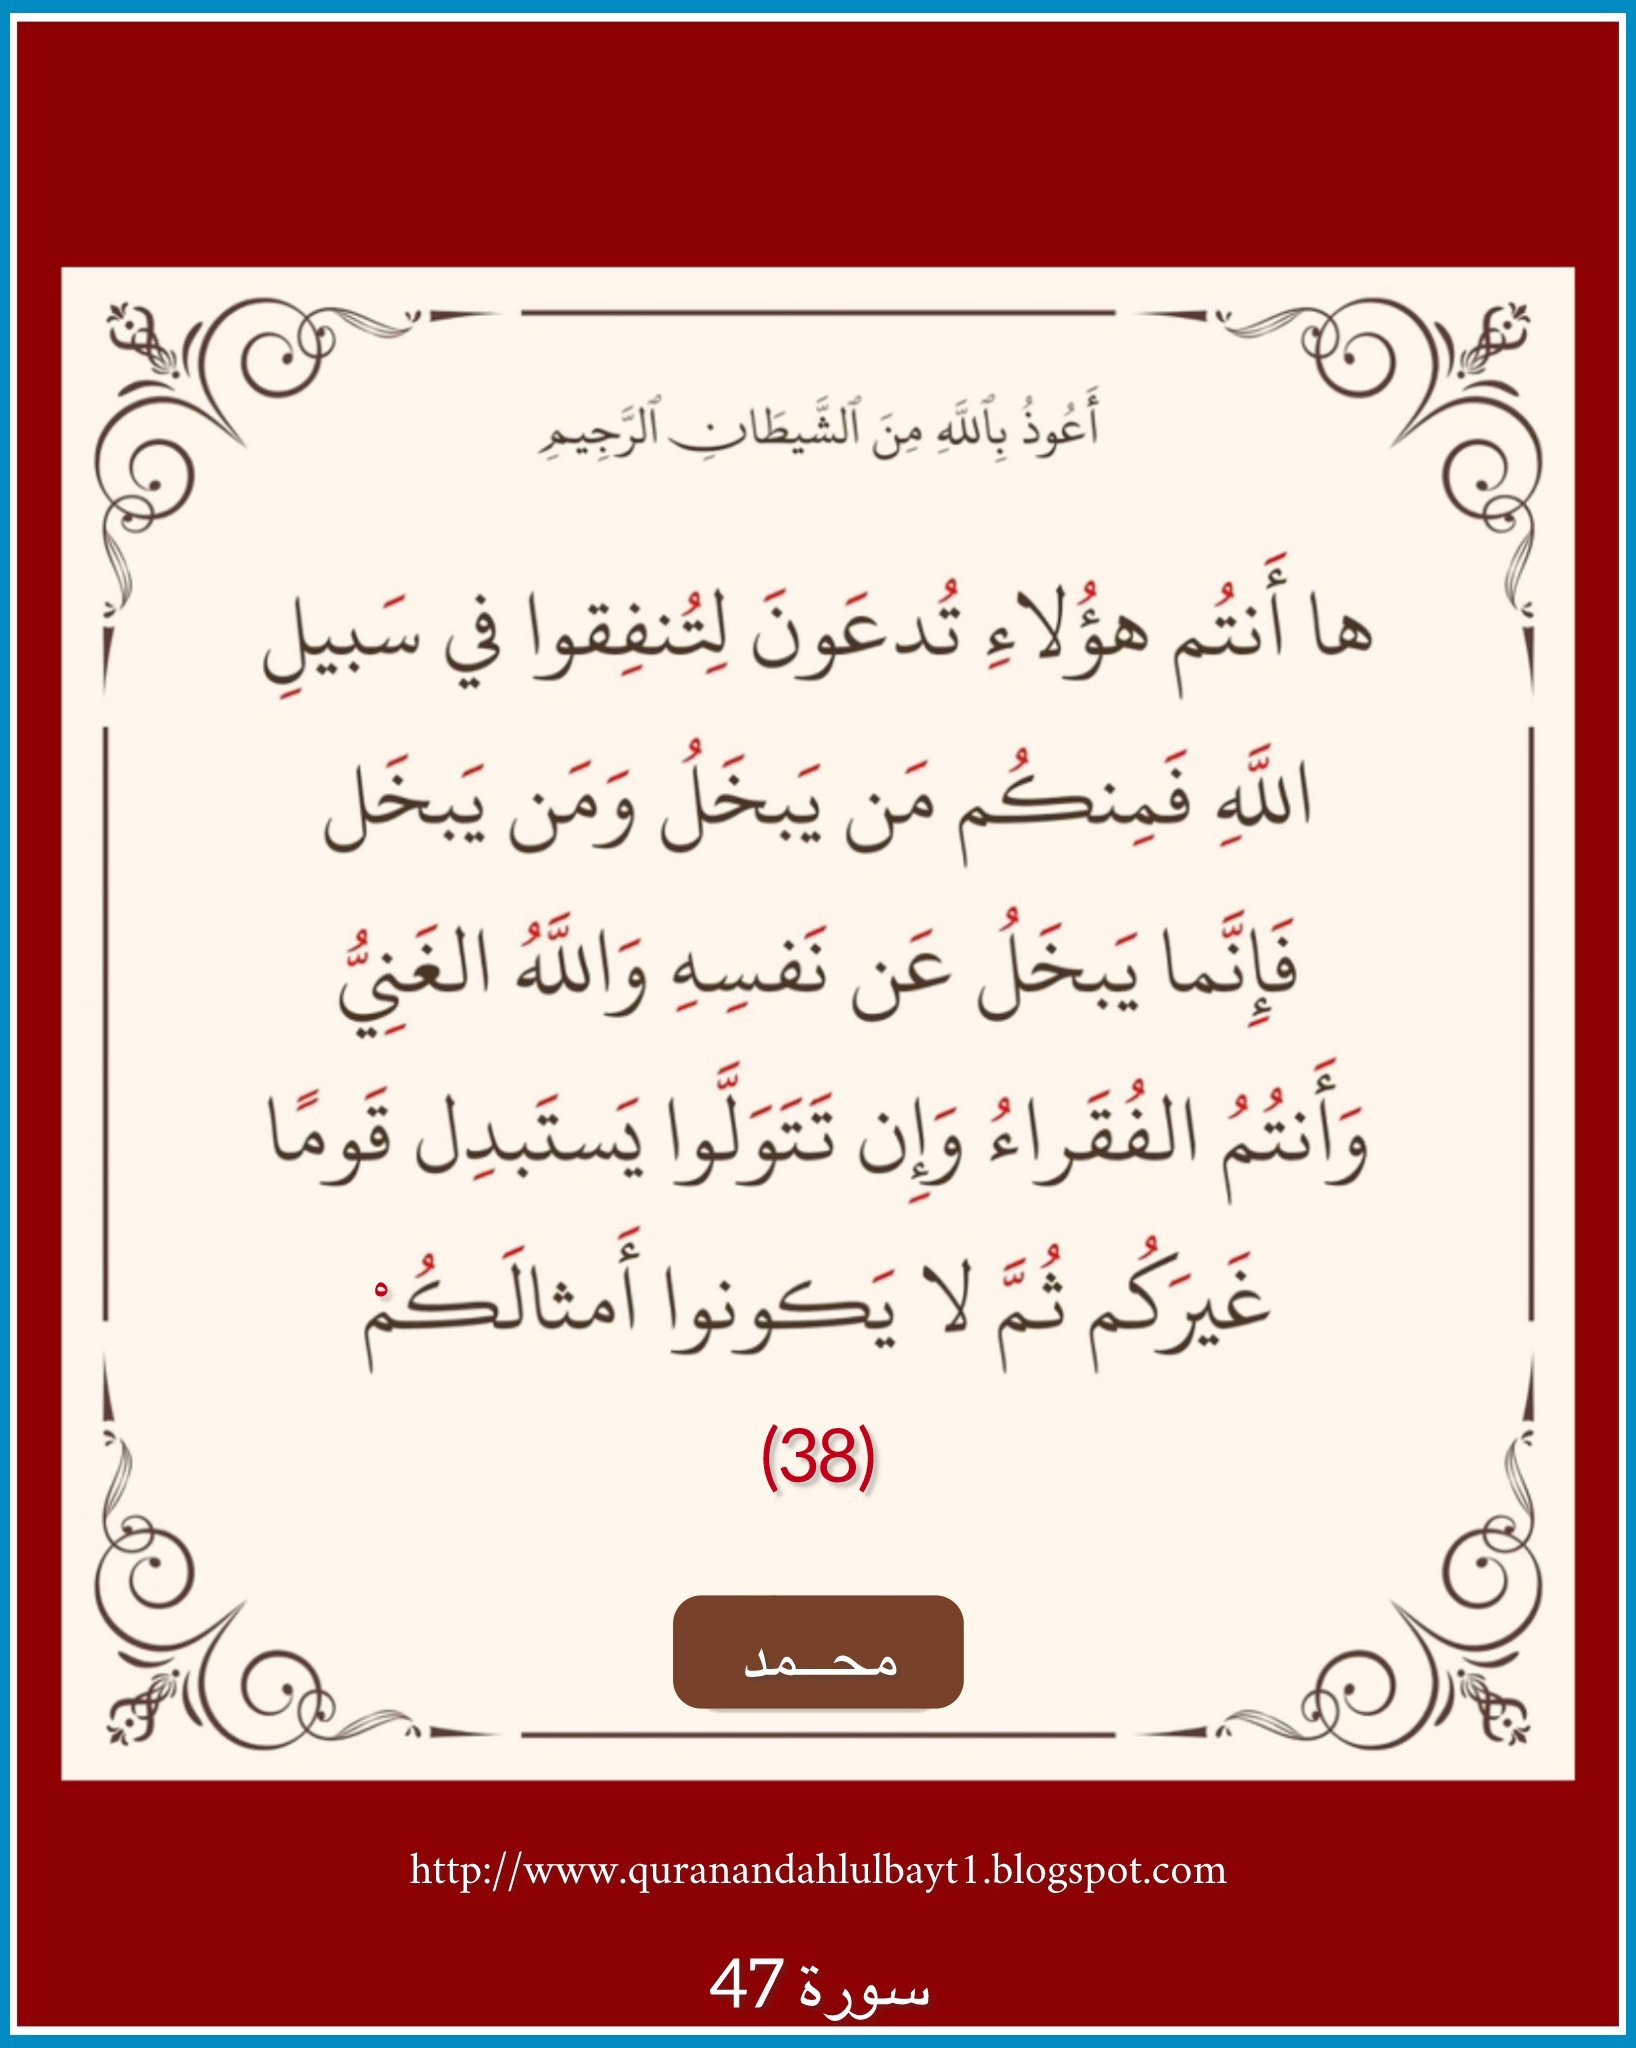 أَعُوذُ بِٱللَّهِ مِنَ ٱلشَّيطَانِ ٱلرَّجِيمِ
ها أَنتُم هؤُلاءِ تُدعَونَ لِتُنفِقوا في سَبيلِ
اللَّهِ فَمِنكُم مَن يَبخَلُ وَمَن يَبخَل
فَإِنَّما يَبخَلُ عَن نَفسِهِ وَاللَّهُ الغَنِيُّ
وَأَنتُمُ الفُقَراءُ وَإِن تَتَوَلَّوا يَستَبدِل قَومًا
غَيرَكُم ثُمَّ لا يَكونوا أَمثالَكُمْ
(38)
محـــمد
http://www.quranandahlulbayt1.blogspot.com
سورة 47